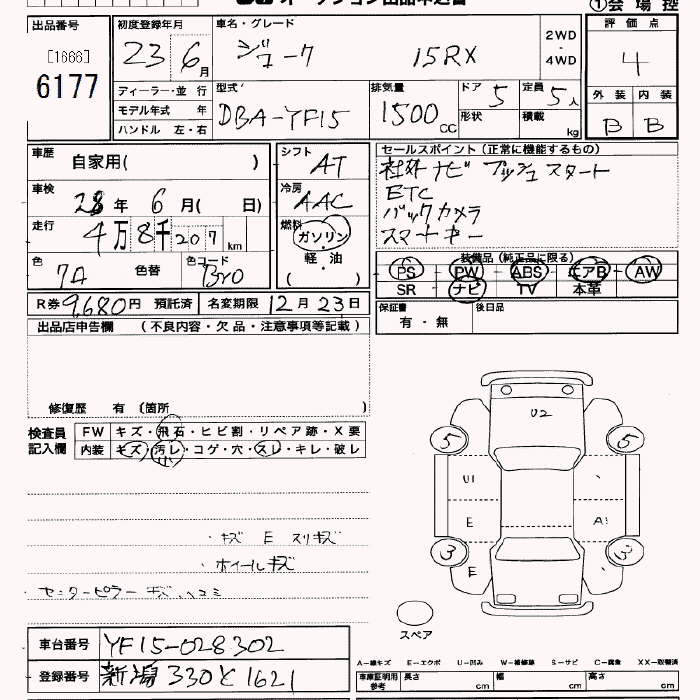 オークション出品申込書 ①会場控
出品番号 [1666] 6177
初度登録年月 23 6月
車名・グレード ジューク 15RX
2WD・4WD
評価点 4
外装 B 内装 B
ディーラー・並行
モデル年式 年
ハンドル 左・右
型式 DBA-YF15
排気量 1500 CC
ドア 5 形状
定員 5人 積載 kg
車歴 自家用( )
車検 28年 6月( 日)
走行 4万8千207km
色 7A 色替 色コード BY0
シフト AT
冷房 AAC
燃料 ガソリン・軽・油 ( )
セールスポイント(正常に機能するもの)
社外ナビ プッシュスタート
ETC
バックカメラ
スマートキー
装備品(純正品に限る)
PS PW ABS エアB AW
SR ナビ TV 本革
R券 9,680円 預託済 名変期限 12月23日
保証書 有・無 後日品
出品店申告欄 (不良内容・欠品・注意事項等記載)
修復歴 有 〔箇所 〕
検査員記入欄
FW キズ・飛石・ヒビ割・リペア跡・X要
内装 キズ・汚レ・コゲ・穴・スレ・キレ・破レ
小
・キズ E スリキズ
・ホイールキズ
センターピラー キズ ハコミ
U2
5 5
U1
E A1
3 3
E
スペア
車台番号 YF15-028302
登録番号 新潟 330 と 1621
A-線キズ E-エクボ U-凹み W-補修跡 S-サビ C-腐食 X-要交換 XX-交換済
車庫証明用参考 長さ cm 幅 cm 高さ cm